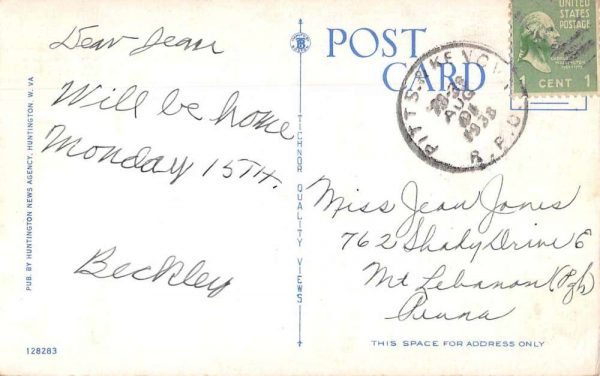 Dear Jean
Will be home
Monday 15TH.
Beckley
PUB. BY HUNTINGTON NEWS AGENCY, HUNTINGTON, W. VA
128283
TICHNOR QUALITY VIEWS
POST CARD
UNITED STATES POSTAGE
1 CENT 1
PITTS. & KENOVA
AUG
1938
R.P.O.
Miss Jean Jones
762 Shady Drive E
Mt Lebanon (Pgh)
Penna
THIS SPACE FOR ADDRESS ONLY